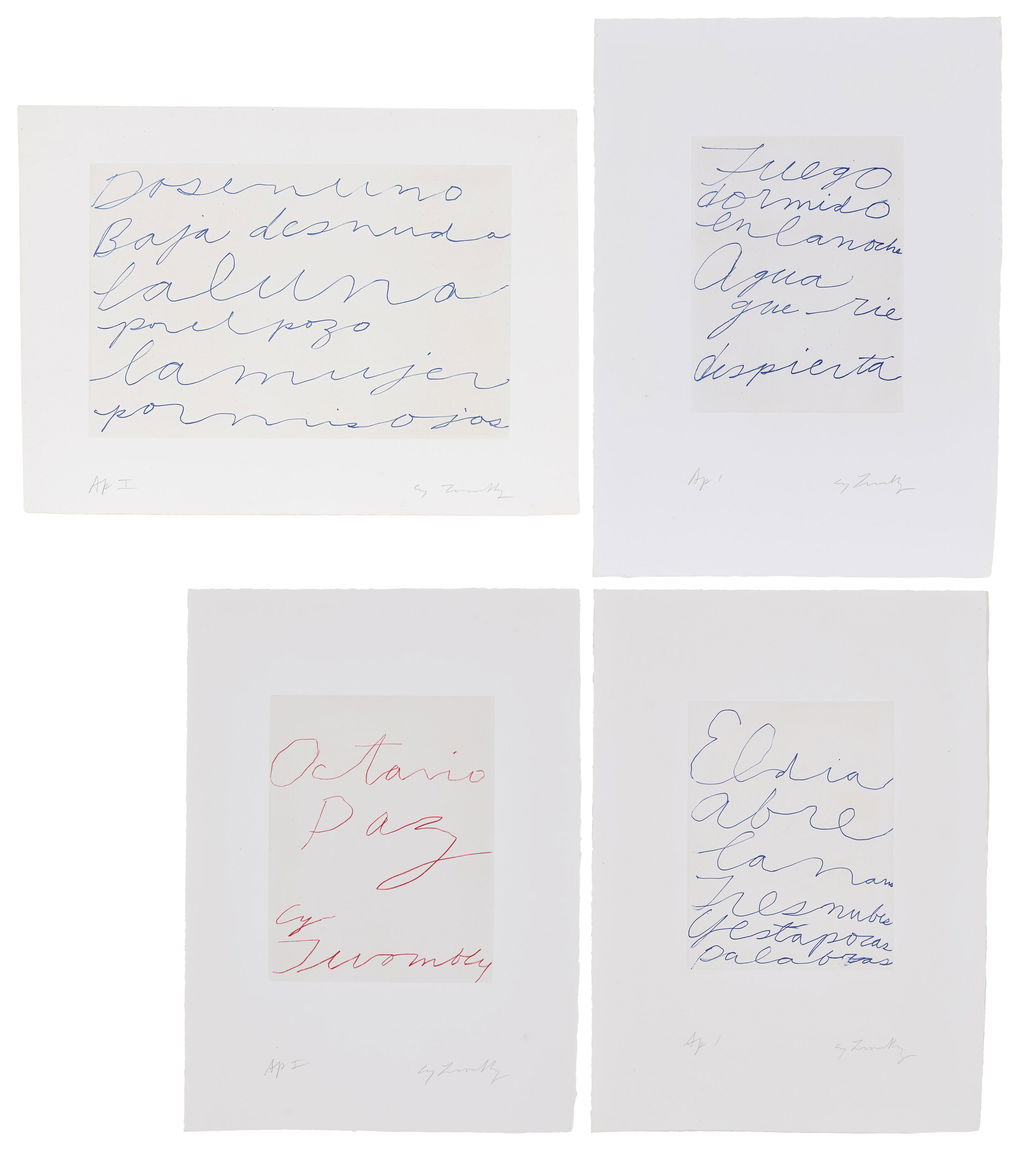 Dosenuno
Baja desnuda
laluna
porel pozo
lamujer
pormisojos
Ap I
Cy Twombly
Fuego
dormido
en lanoche
Agua
que rie
despierta
Ap I
Cy Twombly
Octavio
Paz
Cy
Twombly
Ap I
Cy Twombly
Eldia
abre
lamano
Tresnubes
yestapocas
palabras
Ap I
Cy Twombly